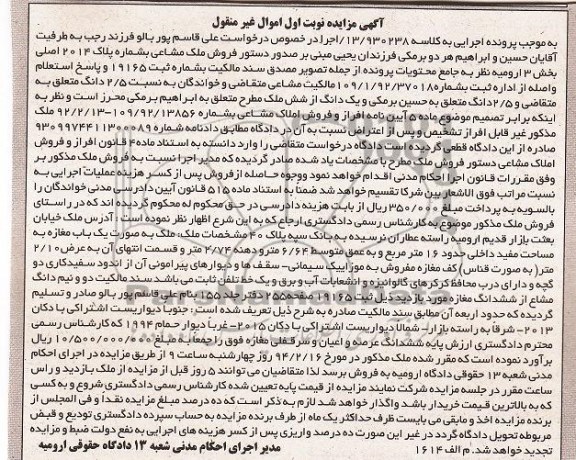 آگهی مزایده نوبت اول اموال غیر منقول
به موجب پرونده اجرایی به کلاسه ۱۳/۹۳۰۲۳۸/اجرا در خصوص درخواست علی قاسم پور بالو فرزند رجب به طرفیت
آقایان حسین و ابراهیم هر دو برمکی فرزندان یحیی مبنی بر صدور دستور فروش ملک مشاعی بشماره پلاک ۲۰۱۴ اصلی
بخش ۳ ارومیه نظر به جامع محتویات پرونده از جمله تصویر مصدق سند مالکیت بشماره ثبت ۱۹۱۶۵ و پاسخ استعلام
واصله از اداره ثبت بشماره ۱۰۹/۱/۹۲/۳۷۰۱۸ مالکیت مشاعی متقاضی و خواندگان به نسبت ۲/۵ دانگ متعلق به
متقاضی و ۲/۵ دانگ متعلق به حسین برمکی و یک دانگ از شش ملک مطرح متعلق به ابراهیم برمکی محرز است و نظر به
اینکه برابر تصمیم موضوع ماده ۵ آیین نامه افراز و فروش املاک مشاعی بشماره ۱۰۹/۹۲/۱۳۸۵۶-۹۲/۲/۱۳ ملک
مذکور غیر قابل افراز تشخیص و پس از اعتراض نسبت به آن در دادگاه مطابق دادنامه شماره ۹۳۰۹۹۷۴۴۱۱۳۰۰۰۸۹
صادره از این دادگاه قطعی گردیده است دادگاه درخواست متقاضی را وارد دانسته به استناد ماده ۴ قانون افراز و فروش
املاک مشاعی دستور فروش ملک مطرح با مشخصات یاد شده صادر گردیده که مدیر اجرا نسبت به فروش ملک مذکور بر
وفق مقررات قانون اجرا احکام مدنی اقدام خواهد نمود ووجوه حاصله ازفروش پس از کسر هزینه عملیات اجرایی به
نسبت مراتب فوق الاشعار بین شرکا تقسیم خواهد شد ضمنا به استناد ماده ۵۱۵ قانون آیین دادرسی مدنی خواندگان را
بالسویه به پرداخت مبلغ ۳۵۰/۰۰۰ ریال از بابت هزینه دادرسی در حق محکوم له محکوم گردیده اند که در راستای
فروش ملک مذکور موضوع به کارشناس رسمی دادگستری ارجاع که به این شرح اظهار نظر نموده است: آدرس ملک خیابان
بعثت بازار قدیم ارومیه راسته عطاران نرسیده به بانک سپه پلاک ۴۰ مشخصات ملک: ملک به صورت یک باب مغازه به
مساحت مفید داخلی حدود ۱۶ متر مربع و به عمق متوسط ۶/۶۴ متر و دهنه ۴/۷۴ متر و قسمت انتهای آن به عرض ۲/۱۰
متر( به صورت قناس) کف مغازه مفروش به موزاییک سیمانی- سقف ها و دیوارهای پیرامونی آن از اندود سفیدکاری دو
گچه و دارای درب محافظ کرکره‌ای گالوانیزه و انشعابات آب و برق و یک خط تلفن ثابت می باشد سند مالکیت دو و نیم دانگ
مشاع از ششدانگ مغازه مورد بازدید ذیل ثبت ۱۹۱۶۵ صفحه ۲۵۵ دفتر جلد ۱۵۵ بنام علی قاسم پور بالو صادر و تسلیم
گردیده که حدود اربعه آن مطابق سند مالکیت صادره به شرح ذیل تعریف شده است: جنوبا دیواریست اشتراکی با دکان
۲۰۱۳- شرقا به راسته بازار- شمالا دیواریست اشتراکی با دکان ۲۰۱۵- غربا دیوار حمام ۱۹۹۴ که کارشناس رسمی
محترم دادگستری ارزش پایه ششدانگ عرصه و اعیان و سرقفلی مغازه فوق را جمعا به مبلغ ۱۰/۵۰۰/۰۰۰/۰۰۰ ریال
برآورد نموده است که مقرر شده ملک مذکور در مورخ ۹۴/۲/۱۶ روز چهارشنبه ساعت ۹ از طریق مزایده در اجرای احکام
مدنی شعبه ۱۳ حقوقی دادگاه ارومیه به فروش برسد لذا متقاضیان می توانند ۵ روز قبل از مزایده از ملک بازدید و راس
ساعت مقرر در جلسه مزایده شرکت نمایند مزایده از قیمت پایه تعیین شده کارشناس رسمی دادگستری شروع و به کسی
که به بالاترین قیمت خریدار باشد واگذار خواهد شد لازم به ذکر است که ده درصد مبلغ مزایده نقدا و فی المجلس از
برنده مزایده اخذ و مابقی می بایست ظرف حداکثر یک ماه از طرف برنده مزایده به حساب سپرده دادگستری تودیع و قبض
مربوطه تحویل دادگاه گردد در غیر این صورت ده درصد واریزی پس از کسر هزینه های اجرایی به نفع دولت ضبط و مزایده
تجدید خواهد شد. م الف ۱۶۱۴
مدیر اجرای احکام مدنی شعبه ۱۳ دادگاه حقوقی ارومیه